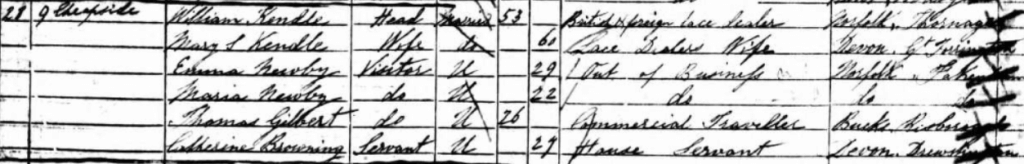 28 9 Cheapside William Kendle Head Married 53 British & foreign Lace Dealer Norfolk, Thornage
Mary S Kendle Wife do 60 Lace Dealers Wife Devon, Gt Torrington
Emma Newby Visitor U 29 Out of Business Norfolk
Maria Newby do U 22 do do do
Thomas Gilbert do U 26 Commercial Traveller Bucks
Catherine Browning Servant U 29 House Servant Devon,